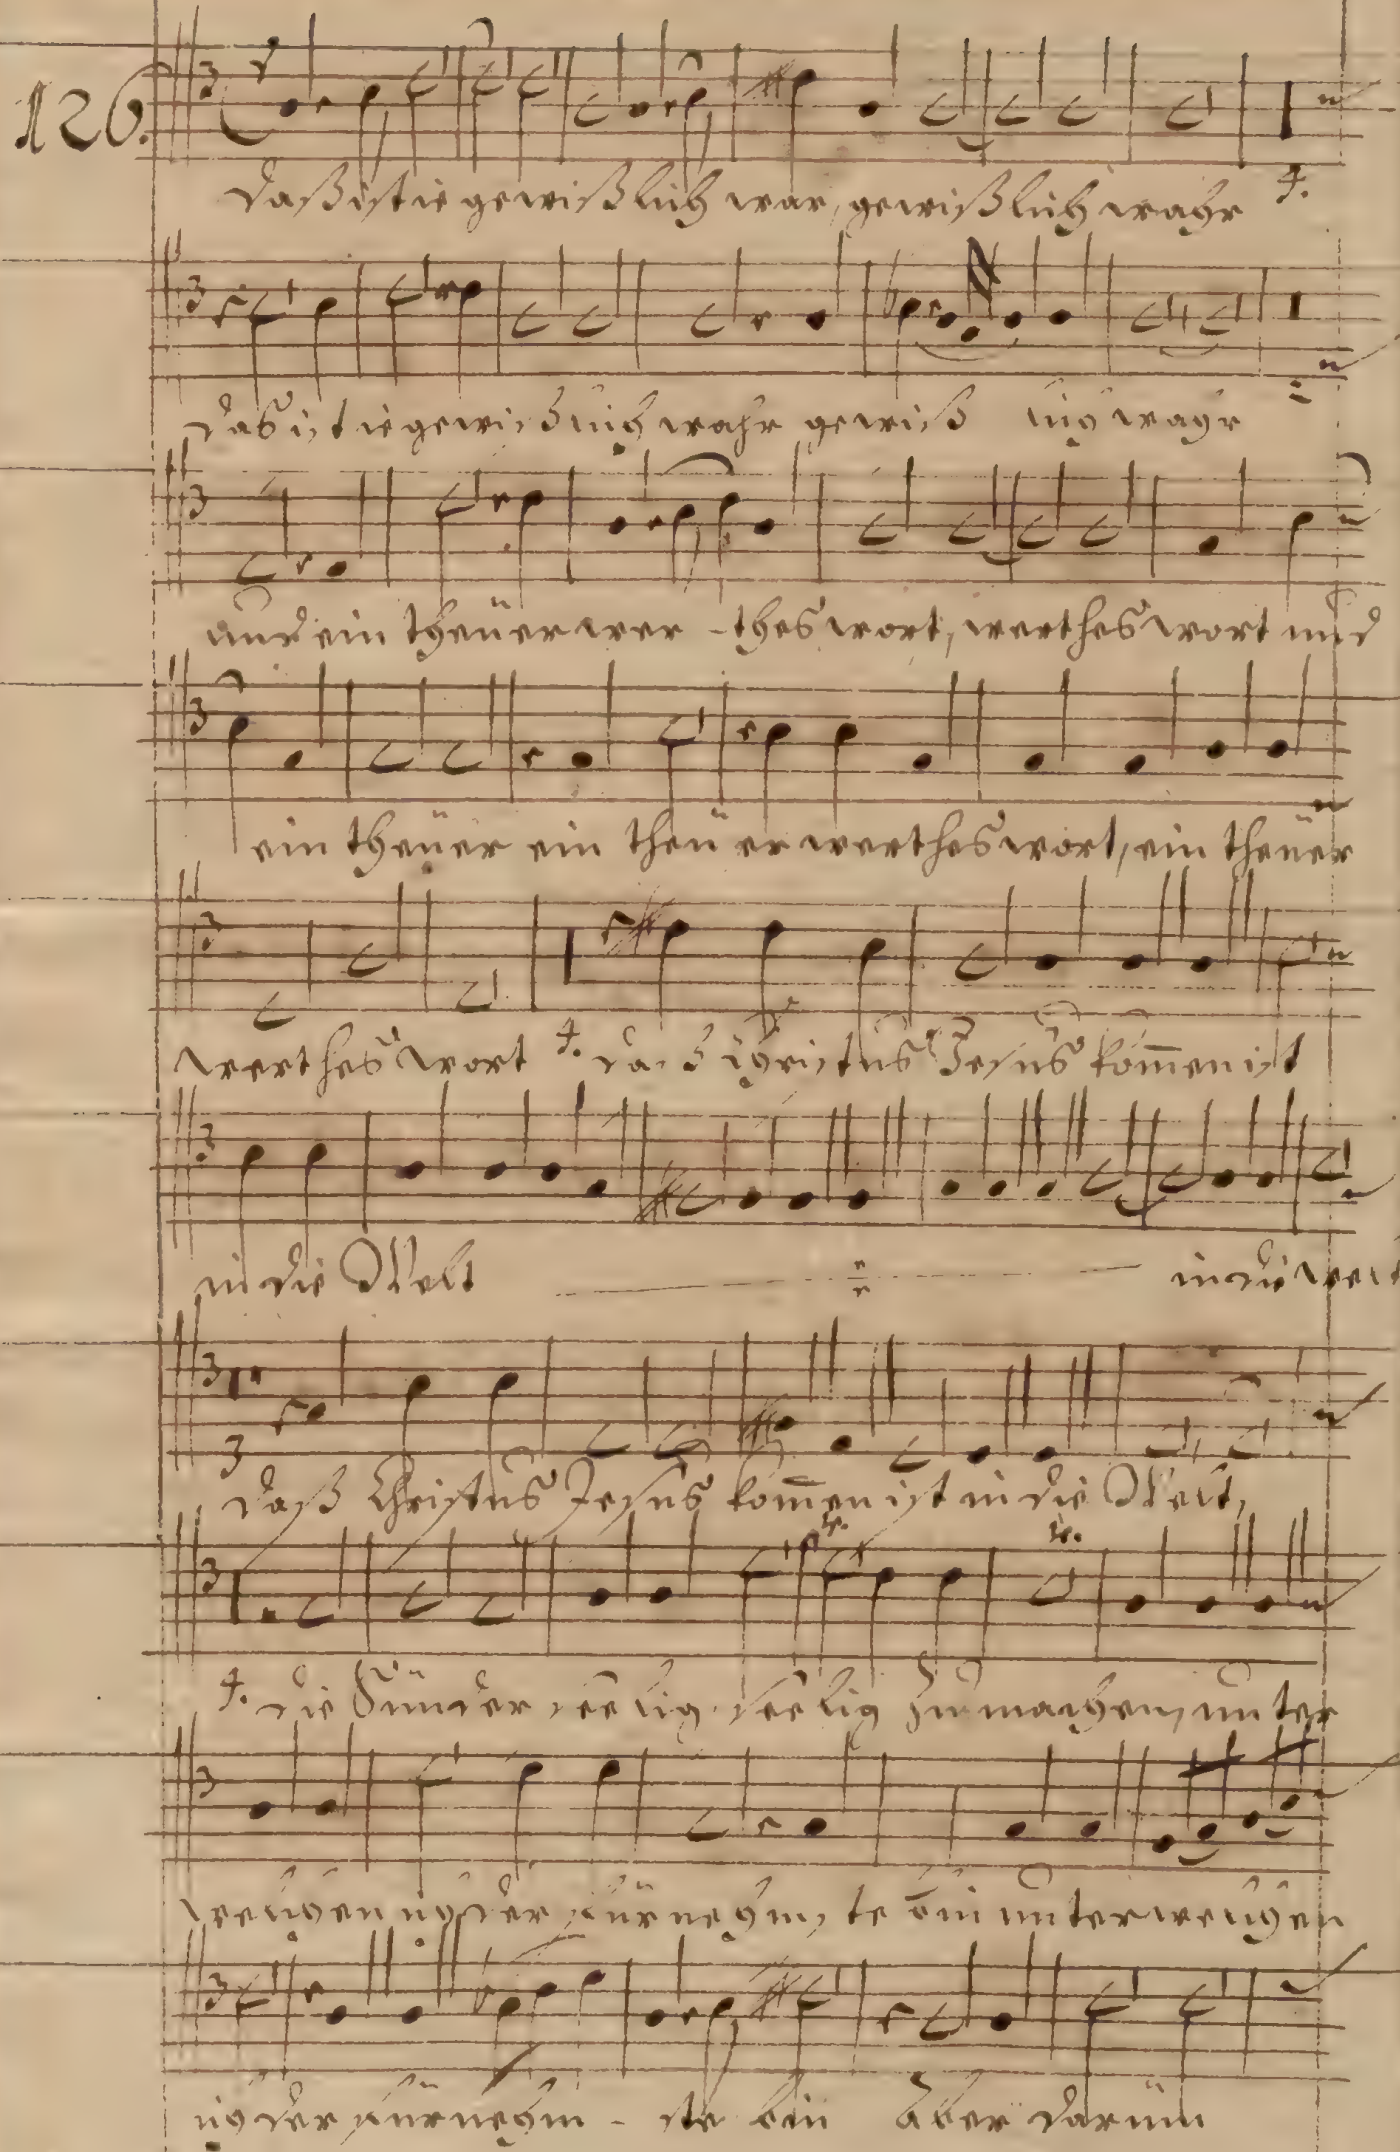 126.
Daß ist ie gewißlich war, gewißlich wahr 4.
Das ist ie gewißlich wahr gewiß lich wahr
und ein theüer wer - thes wort, werthes wort und
ein theüer ein theüer werthes wort, ein theüer
werthes wort 4. daß Christus Jesus kom̄en ist
in die Welt in die welt
3
daß Christus Jesus kom̄en ist in die Welt,
4. die Sünder seelig seelig zu machen, unter
welchen ich der fürnehmste bin unter welchen
ich der fürnehm - ste bin Aber darüm